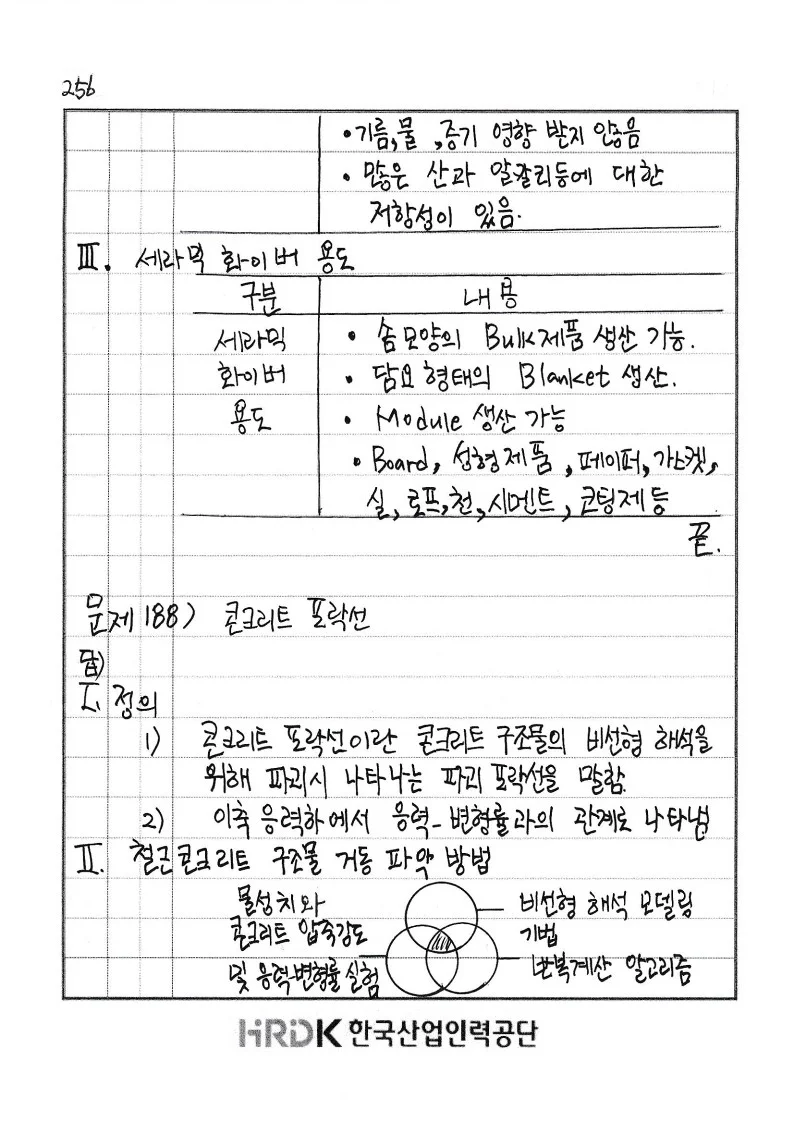 256
• 기름,물 ,증기 영향 받지 않음
• 많은 산과 알칼리등에 대한
저항성이 있음.
Ⅲ. 세라믹 화이버 용도
구분 내용
세라믹 • 솜모양의 Bulk제품 생산 가능.
화이버 • 담요형태의 Blanket 생산.
용도 • Module 생산 가능
• Board, 성형제품 ,페이퍼,가스켓,
실,로프,천,시멘트, 코팅제 등
끝.
문제 188) 콘크리트 포락선
답)
Ⅰ. 정의
1) 콘크리트 포락선이란 콘크리트 구조물의 비선형 해석을
위해 파괴시 나타나는 파괴 포락선을 말함.
2) 이축 응력하에서 응력-변형률과의 관계로 나타냄
Ⅱ. 철근콘크리트 구조물 거동 파악 방법
물성치와 비선형 해석 모델링
콘크리트 압축강도 기법
및 응력-변형률 실험 반복계산 알고리즘
HRDK 한국산업인력공단